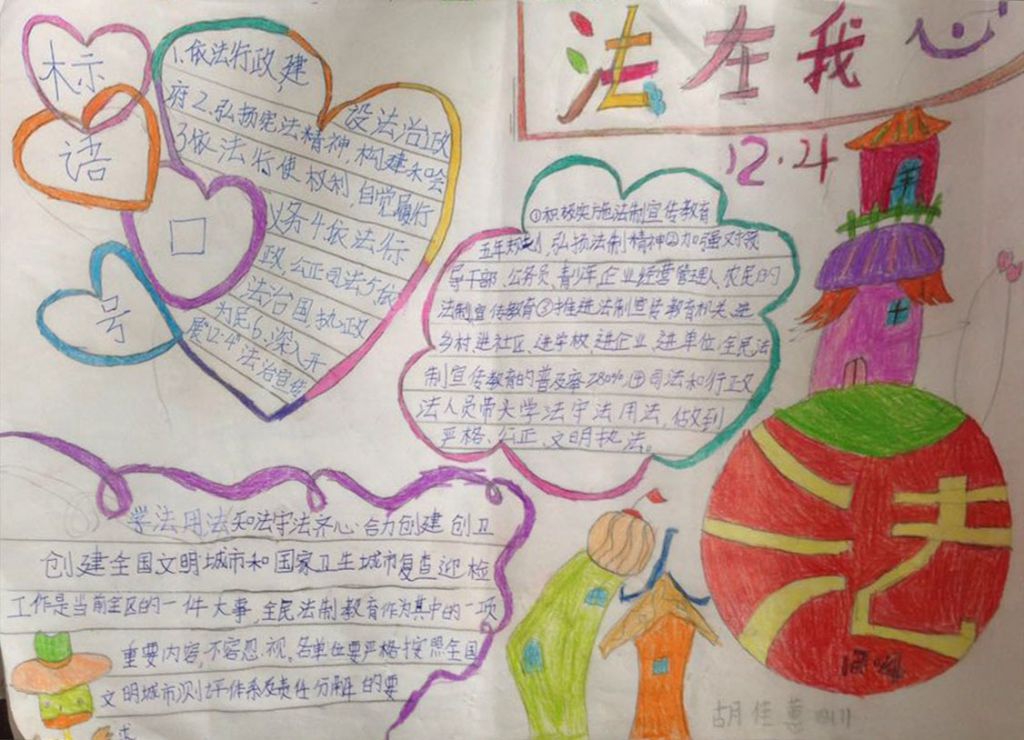 法在我心
12.4
标
语
口
号
1.依法行政建
设法治政
府2.弘扬宪法精神,构建和哈
3依法行使权利,自觉履行
义务4.依法行
政,公正司法5.依
法治国,执政
为民6.深入开
展"12·4"法治宣传
①积极实施法制宣传教育
五年规划,弘扬法制精神②加强对领
导干部、公务员、青少年企业经营管理人、农民的
法制宣传教育③推进法制宣传教育机关、进
乡村、进社区、进学校、进企业、进单位,全民法
制宣传教育的普及率≥80%.④司法和行政
法人员带头学法守法用法,做到
严格、公正、文明执法。
学法用法知法守法齐心合力创建创卫
创建全国文明城市和国家卫生城市复查迎检
工作是当前全区的一件大事,全民法制教育作为其中的一项
重要内容,不容忍视,各单位要严格按照全国
文明城市测评体系及责任分解的要
求
法
胡佳蕙